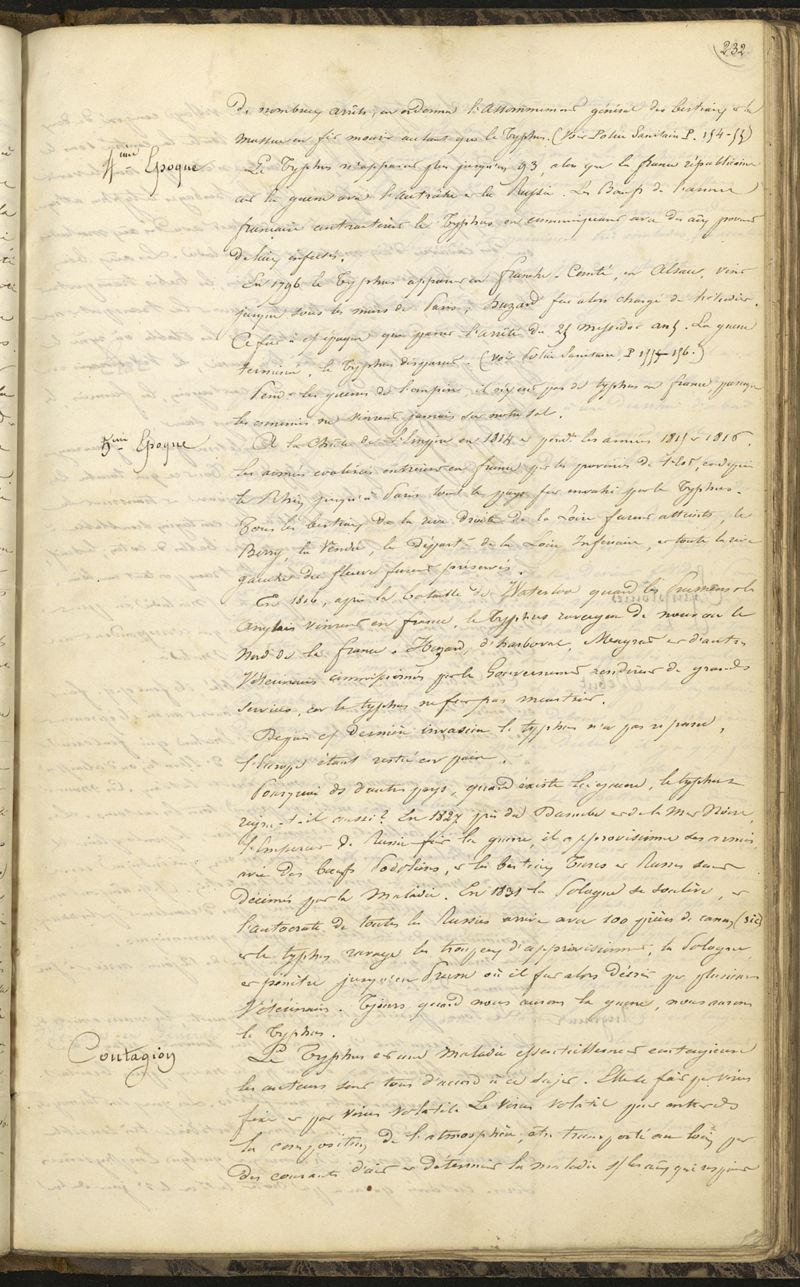 232
de nombreux arrêts, on ordonna l'assommement général des bestiaux & la
massue en fit mourir autant que le typhus. (Voir Police Sanitaire P. 154-55)
4ème Epoque
Le Typhus n'apparut plus jusqu'en 93, alors que la france républicaine
eut la guerre avec l'Autriche & la Russie. Les Bœufs de l'armée
française contractèrent le Typhus en communiquant avec des aux provenant
de lieux infectés.
En 1796 le Typhus apparut en Franche-Comté, en Alsace, vint
jusque sous les murs de Paris, huzard fut alors chargé de l'étudier.
Ce fut à cet époque que parut l'arrêté du 25 Messidor an 5. La guerre
terminée, le Typhus disparut. (Voir Police Sanitaire, P 155-156.)
Pendt les guerres de l'empire il n'y eut pas de typhus en france parceque
les ennemis ne vinrent jamais sur notre sol.
5ème Epoque
A la chute de l'Empire en 1814 & pendt les années 1815 & 1816.
Les armées coalisées entrèrent en france par les provinces de l'Est,
le Rhin jusqu'à Paris tout le pays fut envahi par le Typhus.
Tous les bestiaux de la rive droite de la Loire furent atteints, le
Berry, la Vendée, le Départt de la Loire Inférieure, & toute la rive
gauche du fleuve furent préservés.
En 1816, après la bataille de Waterloo quand les Prussiens & les
Anglais vinrent en france, le Typhus ravagea de nouveau le
Nord de la france. Huzard, d'harboval, Meyrac & d'autres
Vétérinaires commissionnés par le Gouvernement rendirent de grands
services, car le typhus ne fut pas meurtrier.
Depuis cet dernière invasion le typhus n'a pas reparu,
l'Europe étant restée en paix.
Pourquoi ds d'autres pays, quand existe la guerre, le typhus
règne-t-il aussi? En 1827 près du Danube & de la Mer Noire,
l'Empereur de Russie fait la guerre, il approvisionne son armée
avec des bœufs Podoliens, & les bestiaux Turcs & Russes sont
décimés par la Maladie. En 1831 la Pologne se soulève, &
l'autocrate de toutes les Russies arrive avec 100 pièces de canon (sic)
& le typhus ravage les troupeaux d'approvisionnement, la Pologne
& pénètre jusqu'en Prusse où il fut alors décrit par plusieurs
Vétérinaires. Tjours quand nous aurons la guerre, nous aurons
le Typhus.
Contagion
Le Typhus est une Maladie essentiellement contagieuse
les auteurs sont tous d'accord à ce sujet. Elle se fait par virus
fixe & par virus volatil. Le virus volatil peut entrer ds
la composition de l'atmosphère, être transporté au loin par
des courants d'air & déterminer la maladie s/ les aux qui respirent